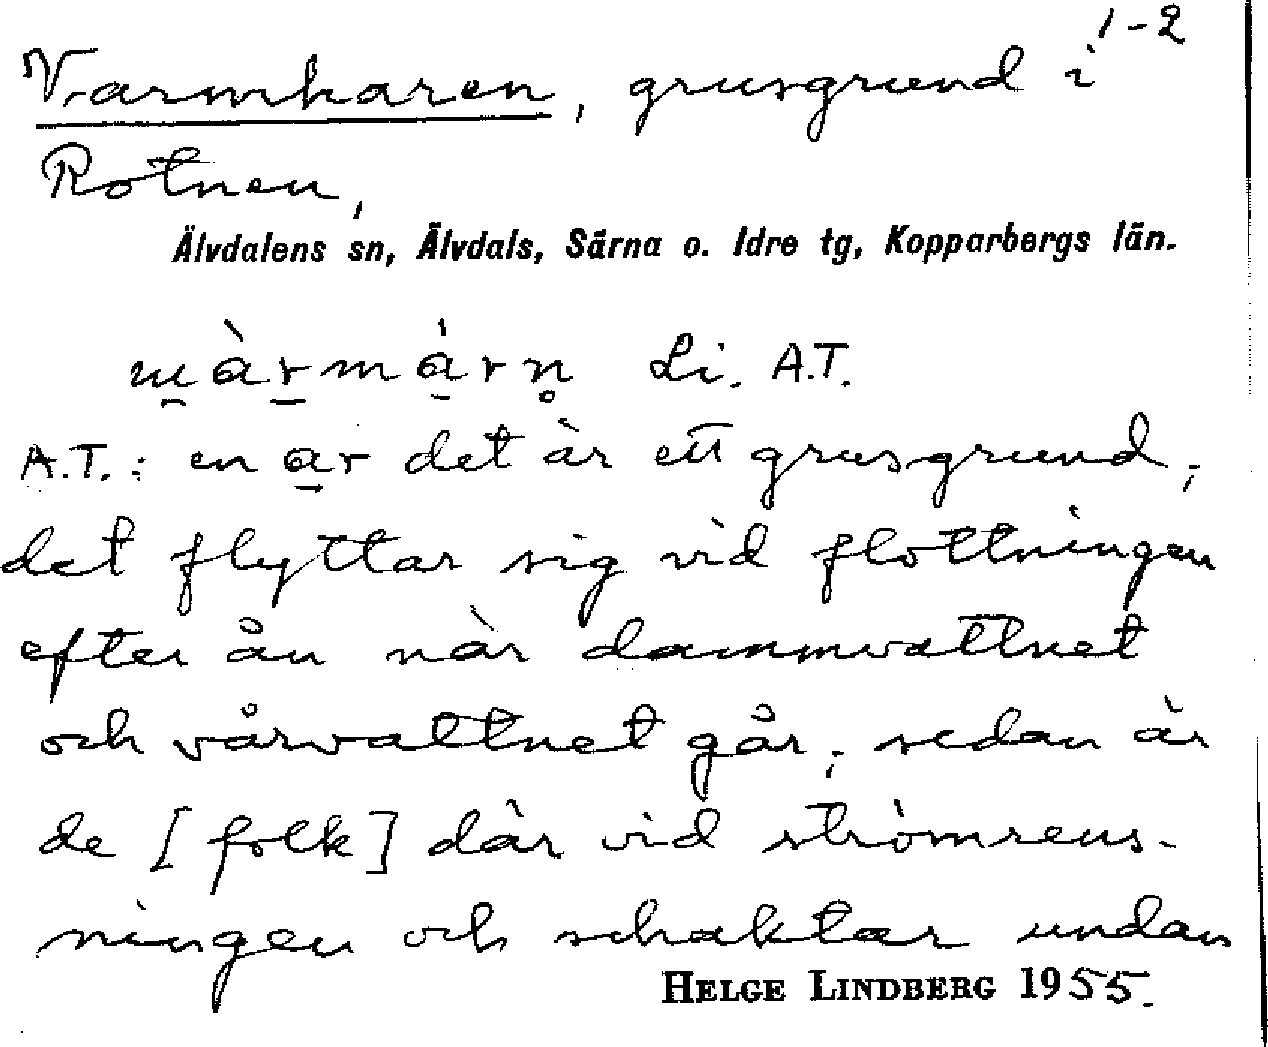 1-2
Varmharen, grusgrund i
Rotnen,
Älvdalens sn, Älvdals, Särna o. Idre tg, Kopparbergs län.
Li. A.T.
A.T.: en ar det är ett grusgrund,
det flyttar sig vid flottningen
efter ån när dammvattnet
och vårvattnet går, sedan är
de [folk] där vid strömrens-
ningen och schaktar undan
HELGE LINDBERG 1955.